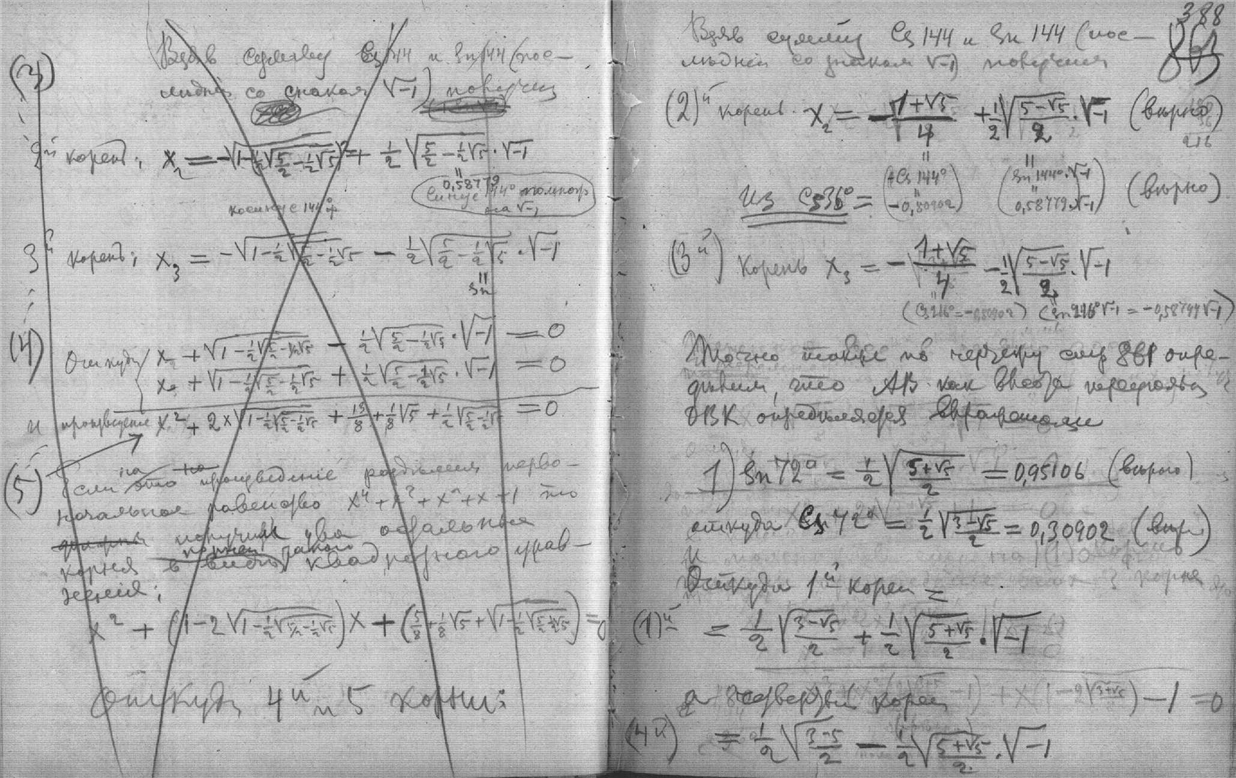 Взяв сумму Cs 144 и Sn 144 (пос-
лѣдней со знаком √-1) получим
(3)
2й корень; x₂ = -√(1-½√(5/2-½√5)) + ½√(5/2-½√5)·√-1
косинус 144°
0,58779
синус 144° помнож на √-1
3й корень; x₃ = -√(1-½√(5/2-½√5)) - ½√(5/2-½√5)·√-1
Sn
(4)
Откуда x₂ + √(1-½√(5/2-½√5)) - ½√(5/2-½√5)·√-1 = 0
x₃ + √(1-½√(5/2-½√5)) + ½√(5/2-½√5)·√-1 = 0
и произведение x² + 2x√(1-½√(5/2-½√5)) + 15/8 + 1/8√5 + ½√(5/2-½√5) = 0
(5) Если на это произведение раздѣлим перво-
начальное равенство x⁴+x³+x²+x+1 то
получим два остальные
корня в видѣ квадратного урав-
нения;
x² + (1-2√(1-½√(5/2-½√5)))x + (5/8+1/8√5+√(1-½√(5/2-½√5))) = 0
Откуда 4й и 5 корни:
388
Взяв сумму Cs 144 и Sn 144 (пос-
лѣдней со знаком √-1) получим
(2)й корень x₂ = -(1+√5)/4 + ½√((5-√5)/2)·√-1 (вѣрно)
216
из Cs 36° = (+Cs 144° = -0,80902) (Sn 144°·√-1 = 0,58779·√-1) (вѣрно)
(3й) корень x₃ = -(1+√5)/4 - ½√((5-√5)/2)·√-1
(Cs 216° = -0,80902) (Sn 216°√-1 = -0,58779√-1)
Точно также по чертежу стр опре-
дѣлим, что AB как
ABK опредѣляется
1) Sn 72° = ½√((5+√5)/2) = 0,95106 (вѣрно)
откуда Cs 72° = ½√((3-√5)/2) = 0,30902 (вѣр)
Откуда 1й корен =
(1)й = ½√((3-√5)/2) + ½√((5+√5)/2)·√-1
а четвертый корен
(4й) = ½√((3-5)/2) - ½√((5+√5)/2)·√-1